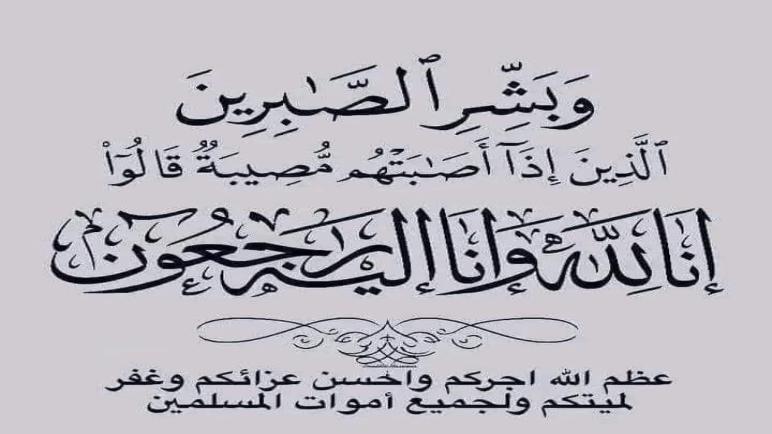 وَبَشِّرِ ٱلصَّـٰبِرِينَ
ٱلَّذِينَ إِذَآ أَصَـٰبَتْهُم مُّصِيبَةٌ قَالُوٓا۟
إنا لله وإنا إليه راجعون
عظم الله اجركم واحسن عزائكم وغفر
لميتكم ولجميع أموات المسلمين